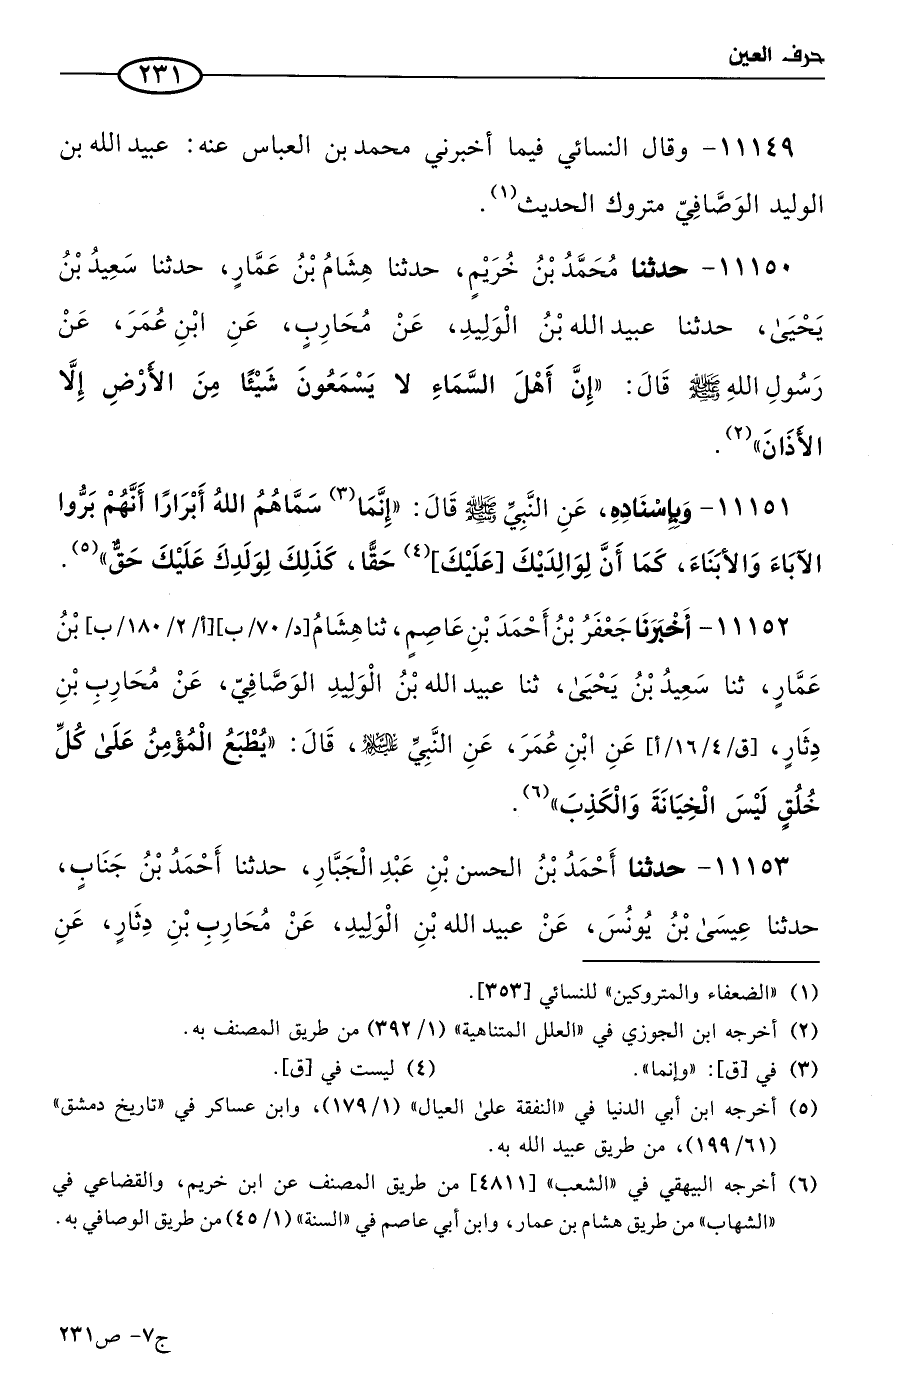 حرف العين
٢٣١
١١١٤٩- وقال النسائي فيما أخبرني محمد بن العباس عنه: عبيد الله بن
الوليد الوَصَّافِيّ متروك الحديث(١).
١١١٥٠- حدثنا مُحَمَّدُ بْنُ خُرَيْمٍ، حدثنا هِشَامُ بْنُ عَمَّارٍ، حدثنا سَعِيدُ بْنُ
يَحْيَىٰ، حدثنا عبيد الله بْنُ الْوَلِيدِ، عَنْ مُحَارِبٍ، عَنِ ابْنِ عُمَرَ، عَنْ
رَسُولِ اللهِ ﷺ قَالَ: «إِنَّ أَهْلَ السَّمَاءِ لا يَسْمَعُونَ شَيْئًا مِنَ الأَرْضِ إِلَّا
الأَذَانَ»(٢).
١١١٥١- وَبِإِسْنَادِهِ، عَنِ النَّبِيِّ ﷺ قَالَ: «إِنَّمَا(٣) سَمَّاهُمُ اللهُ أَبْرَارًا أَنَّهُمْ بَرُّوا
الآبَاءَ وَالأبَنَاءَ، كَمَا أَنَّ لِوَالِدَيْكَ [عَلَيْكَ](٤) حَقًّا، كَذَلِكَ لِوَلَدِكَ عَلَيْكَ حَقٌّ»(٥).
١١١٥٢- أَخْبَرَنَا جَعْفَرُ بْنُ أَحْمَدَ بْنِ عَاصِمٍ، ثنا هِشَامُ[د/٧٠/ب][أ/٢/١٨٠/ب] بْنُ
عَمَّارٍ، ثنا سَعِيدُ بْنُ يَحْيَىٰ، ثنا عبيد الله بْنُ الْوَلِيدِ الوَصَّافِيّ، عَنْ مُحَارِبِ بْنِ
دِثَارٍ، [ق/٤/١٦/أ] عَنِ ابْنِ عُمَرَ، عَنِ النَّبِيِّ ﷺ، قَالَ: «يُطْبَعُ الْمُؤْمِنُ عَلَىٰ كُلِّ
خُلُقٍ لَيْسَ الْخِيَانَةَ وَالْكَذِبَ»(٦).
١١١٥٣- حدثنا أَحْمَدُ بْنُ الحسن بْنِ عَبْدِ الْجَبَّارِ، حدثنا أَحْمَدُ بْنُ جَنَابٍ،
حدثنا عِيسَىٰ بْنُ يُونُسَ، عَنْ عبيد الله بْنِ الْوَلِيدِ، عَنْ مُحَارِبِ بْنِ دِثَارٍ، عَنِ
(١) «الضعفاء والمتروكين» للنسائي [٣٥٣].
(٢) أخرجه ابن الجوزي في «العلل المتناهية» (١/ ٣٩٢) من طريق المصنف به.
(٣) في [ق]: «وإنما». (٤) ليست في [ق].
(٥) أخرجه ابن أبي الدنيا في «النفقة علىٰ العيال» (١/ ١٧٩)، وابن عساكر في «تاريخ دمشق»
(٦١/ ١٩٩)، من طريق عبيد الله به.
(٦) أخرجه البيهقي في «الشعب» [٤٨١١] من طريق المصنف عن ابن خريم، والقضاعي في
«الشهاب» من طريق هشام بن عمار، وابن أبي عاصم في «السنة» (١/ ٤٥) من طريق الوصافي به.
ج٧- ص٢٣١